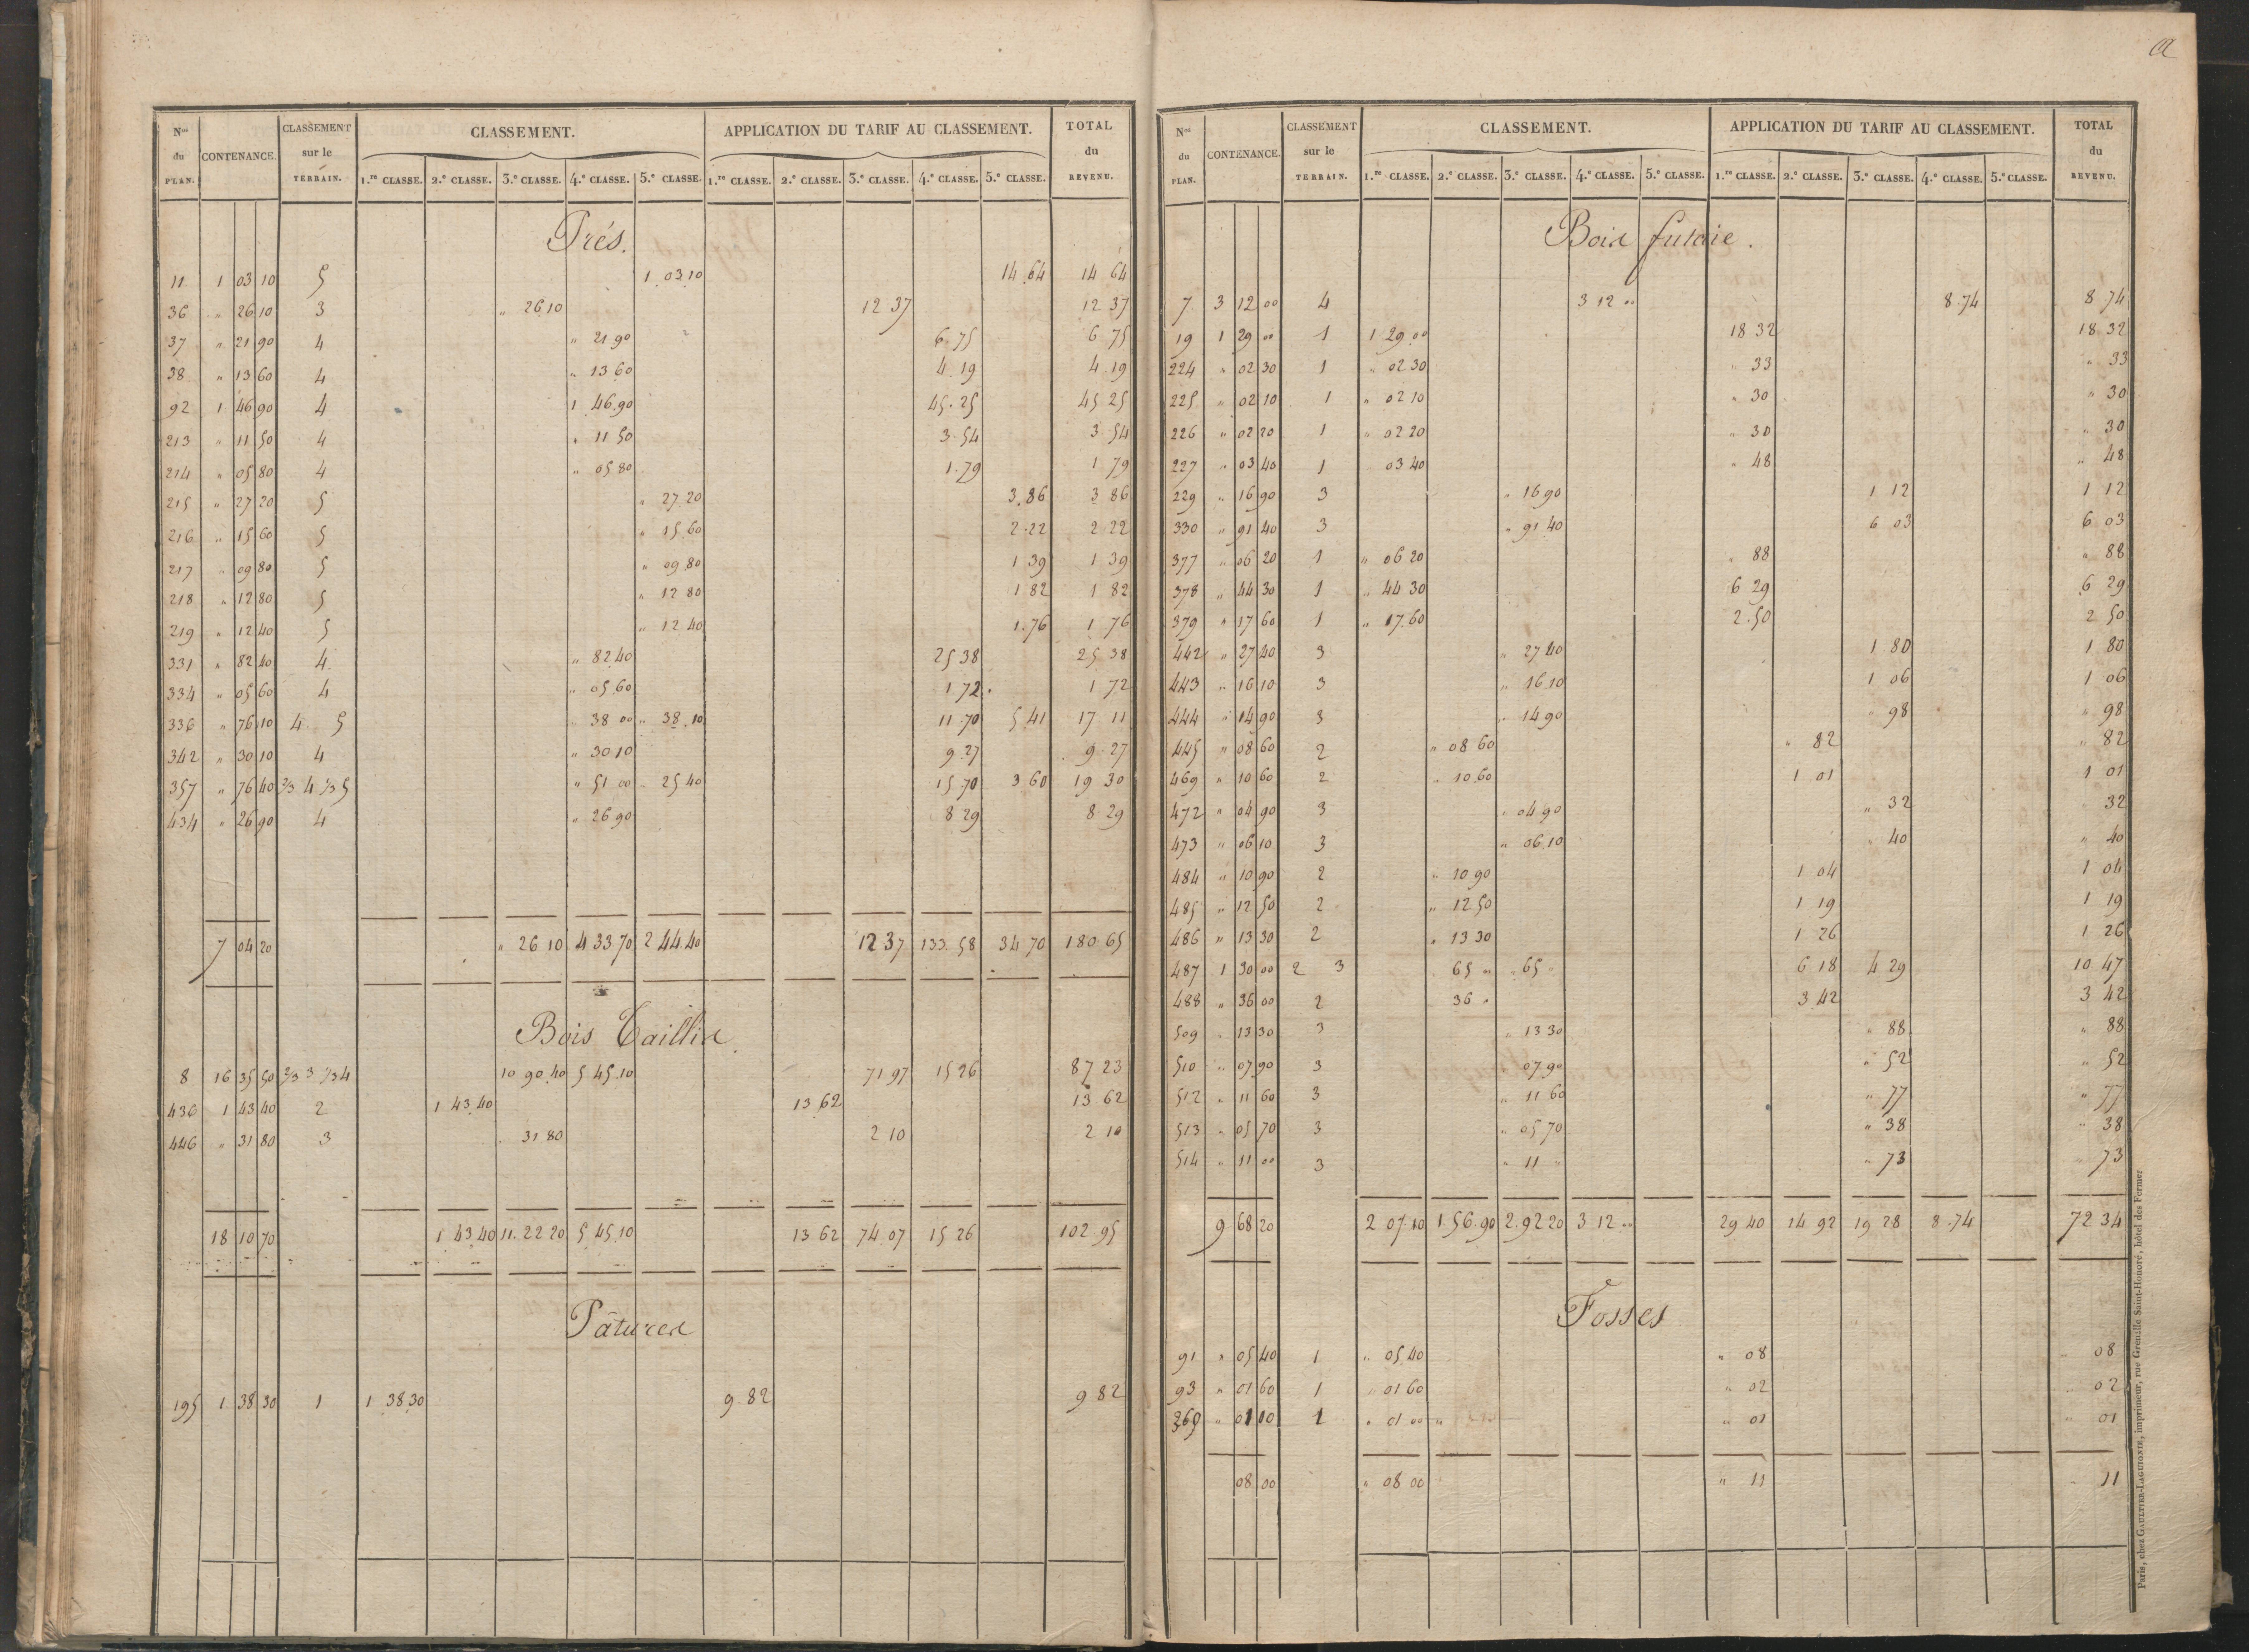 a
Nos du PLAN. CONTENANCE. CLASSEMENT sur le TERRAIN. CLASSEMENT. APPLICATION DU TARIF AU CLASSEMENT. TOTAL du REVENU.
1.re CLASSE. 2.e CLASSE. 3.e CLASSE. 4.e CLASSE. 5.e CLASSE. 1.re CLASSE. 2.e CLASSE. 3.e CLASSE. 4.e CLASSE. 5.e CLASSE.
Prés.
11 1 03 10 5 1 03 10 14 64 14 64
36 " 26 10 3 " 26 10 12 37 12 37
37 " 21 90 4 " 21 90 6 75 6 75
38 " 13 60 4 " 13 60 4 19 4 19
92 1 46 90 4 1 46 90 45 25 45 25
213 " 11 50 4 " 11 50 3 54 3 54
214 " 05 80 4 " 05 80 1 79 1 79
215 " 27 20 5 " 27 20 3 86 3 86
216 " 15 60 5 " 15 60 2 22 2 22
217 " 09 80 5 " 09 80 1 39 1 39
218 " 12 80 5 " 12 80 1 82 1 82
219 " 12 40 5 " 12 40 1 76 1 76
331 " 82 40 4 " 82 40 25 38 25 38
334 " 05 60 4 " 05 60 1 72 1 72
336 " 76 10 4 5 " 38 00 " 38 10 11 70 5 41 17 11
342 " 30 10 4 " 30 10 9 27 9 27
357 " 76 40 2/3 4 1/3 5 " 51 00 " 25 40 15 70 3 60 19 30
434 " 26 90 4 " 26 90 8 29 8 29
7 04 20 " 26 10 4 33 70 2 44 40 12 37 133 58 34 70 180 65
Bois Taillis
8 16 35 50 2/3 3 1/3 4 10 90 40 5 45 10 71 97 15 26 87 23
436 1 43 40 2 1 43 40 13 62 13 62
446 " 31 80 3 " 31 80 2 10 2 10
18 10 70 1 43 40 11 22 20 5 45 10 13 62 74 07 15 26 102 95
Pâtures
195 1 38 30 1 1 38 30 9 82 9 82
Nos du PLAN. CONTENANCE. CLASSEMENT sur le TERRAIN. CLASSEMENT. APPLICATION DU TARIF AU CLASSEMENT. TOTAL du REVENU.
1.re CLASSE. 2.e CLASSE. 3.e CLASSE. 4.e CLASSE. 5.e CLASSE. 1.re CLASSE. 2.e CLASSE. 3.e CLASSE. 4.e CLASSE. 5.e CLASSE.
Bois futaie.
7 3 12 00 4 3 12 00 8 74 8 74
19 1 29 00 1 1 29 00 18 32 18 32
224 " 02 30 1 " 02 30 " 33 " 33
225 " 02 10 1 " 02 10 " 30 " 30
226 " 02 20 1 " 02 20 " 30 " 30
227 " 03 40 1 03 40 " 48 " 48
229 " 16 90 3 " 16 90 1 12 1 12
330 " 91 40 3 " 91 40 6 03 6 03
377 " 06 20 1 " 06 20 " 88 " 88
378 " 44 30 1 " 44 30 6 29 6 29
379 " 17 60 1 " 17 60 2 50 2 50
442 " 27 40 3 " 27 40 1 80 1 80
443 " 16 10 3 " 16 10 1 06 1 06
444 " 14 90 3 " 14 90 " 98 " 98
445 " 08 60 2 " 08 60 " 82 " 82
469 " 10 60 2 " 10 60 1 01 1 01
472 " 04 90 3 " 04 90 " 32 32
473 " 06 10 3 " 06 10 " 40 " 40
484 " 10 90 2 " 10 90 1 04 1 04
485 " 12 50 2 " 12 50 1 19 1 19
486 " 13 30 2 " 13 30 1 26 1 26
487 1 30 00 2 3 65 " " 65 " 6 18 4 29 10 47
488 " 36 00 2 36 " 3 42 3 42
509 " 13 30 3 " 13 30 " 88 " 88
510 " 07 90 3 07 90 " 52 " 52
512 " 11 60 3 " 11 60 " 77 " 77
513 " 05 70 3 " 05 70 " 38 " 38
514 " 11 00 3 " 11 " " 73 " 73
9 68 20 2 07 10 1 56 90 2 92 20 3 12 00 29 40 14 92 19 28 8 74 72 34
Fosses
91 " 05 40 1 " 05 40 " 08 " 08
93 " 01 60 1 " 01 60 " 02 " 02
369 " 01 00 1 " 01 00 " " 01 " 01
08 00 " 08 00 " 11 " 11
Paris, chez GAULTIER-LAGUIONIE, imprimeur, rue Grenelle Saint-Honoré, hôtel des Fermes